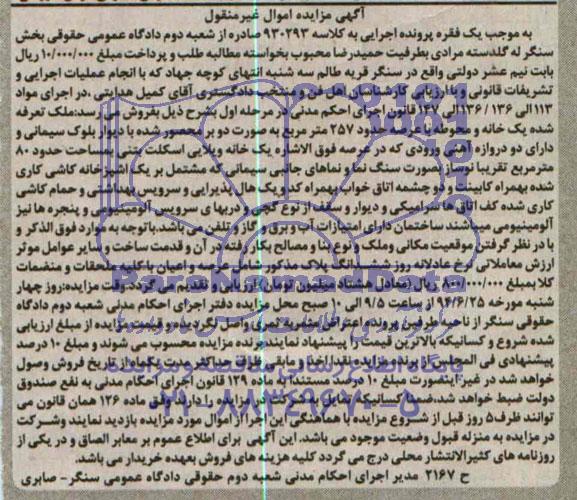 آگهی مزایده اموال غیرمنقول
به موجب یک فقره پرونده اجرایی به کلاسه ۹۳۰۲۹۳ صادره از شعبه دوم دادگاه عمومی حقوقی بخش
سنگر له گلدسته مرادی بطرفیت حمیدرضا محبوب بخواسته مطالبه طلب و پرداخت مبلغ ۱۰/۰۰۰/۰۰۰ ریال
بابت نیم عشر دولتی واقع در سنگر قریه طالم سه شنبه انتهای کوچه جهاد که با انجام عملیات اجرایی و
تشریفات قانونی و با ارزیابی کارشناسان اهل فن و منتخب دادگستری آقای کمیل هدایتی ،در اجرای مواد
۱۱۳الی ۱۳۶ / ۱۳۶الی ۱۳۷ قانون اجرای احکم مدنی در مرحله اول بشرح ذیل بفروش می رسد:ملک تعرفه
شده یک خانه و محوطه با عرصه حدود ۲۵۷ متر مربع به صورت دو بر محصور شده با دیوار بلوک سیمانی و
دارای دو دروازه آهنی ورودی که در عرصه فوق الاشاره یک خانه ویلایی اسکلت بتنی بمساحت حدود ۸۰
مترمربع تقریبا نوساز بصورت سنگ نما و نماهای جانبی سیمانی که مشتمل بر یک آشپزخانه کاشی کاری
شده بهمراه کابینت و دو چشمه اتاق خواب بهمراه کمد و یک هال پذیرایی و سرویس بهداشتی و حمام کاشی
کاری شده کف اتاق ها سرامیکی و دیوار و سقف از نوع گچی و دربهای سرویس آلومینیومی و پنجره ها نیز
آلومینیومی میباشند ساختمان دارای امتیازات آب و برق و گاز و تلفن می باشد.باتوجه به موارد فوق الذکر و
با در نظر گرفتن موقعیت مکانی وملک و نوع بنا و مصالح بکار رفته در آن و قدمت ساخت و سایر عوامل موثر
ارزش معاملاتی نرخ عادلانه روز ششدانگ پلاک مذکور شامل عرصه و اعیان با کلیه ملحقات و منضمات
کلا بمبلغ ۸۰۰/۰۰۰/۰۰۰ ریال (معادل هشتاد میلیون تومان) ارزیابی و تقدیم می گردد.وقت مزایده:روز چهار
شنبه مورخه ۹۴/۶/۲۵ از ساعت ۹/۵ الی ۱۰ صبح محل مزایده دفتر اجرای احکام مدنی شعبه دوم دادگاه
حقوقی سنگر از ناحیه طرفین پرونده اعتراض مثمربه ثمری واصل نگردیده و قیمت مزایده از مبلغ ارزیابی
شده شروع و کسانیکه بالاترین قیمت را پیشنهاد نمایند برنده مزایده محسوب می شوند و مبلغ ۱۰ درصد
پیشنهادی فی المجلس از برنده مزایده نقدا اخذ و مابقی ظرف حداکثر مدت یکماه از تاریخ فروش وصول
خواهد شد در غیر اینصورت مبلغ ۱۰ درصد مستندا به ماده ۱۲۹ قانون اجرای احکام مدنی به نفع صندوق
دولت ضبط خواهد شد،ضمنا کسانیکه تمایل به شرکت در مزایده را دارند وفق ماده ۱۲۶ همان قانون می
توانند ظرف۵ روز قبل از شروع مزایده با هماهنگی این اجرا از اموال مورد مزایده بازدید نمایند وشرکت
در مزایده به منزله قبول وضعیت موجود می باشد. این آگهی برای اطلاع عموم بر معابر الصاق و در یکی از
روزنامه های کثیرالانتشار محلی درج می گردد کلیه هزینه های فروش بعهده خریدار می باشد.
ح ۲۱۶۷ مدیر اجرای احکام مدنی شعبه دوم حقوقی دادگاه عمومی سنگر- صابری